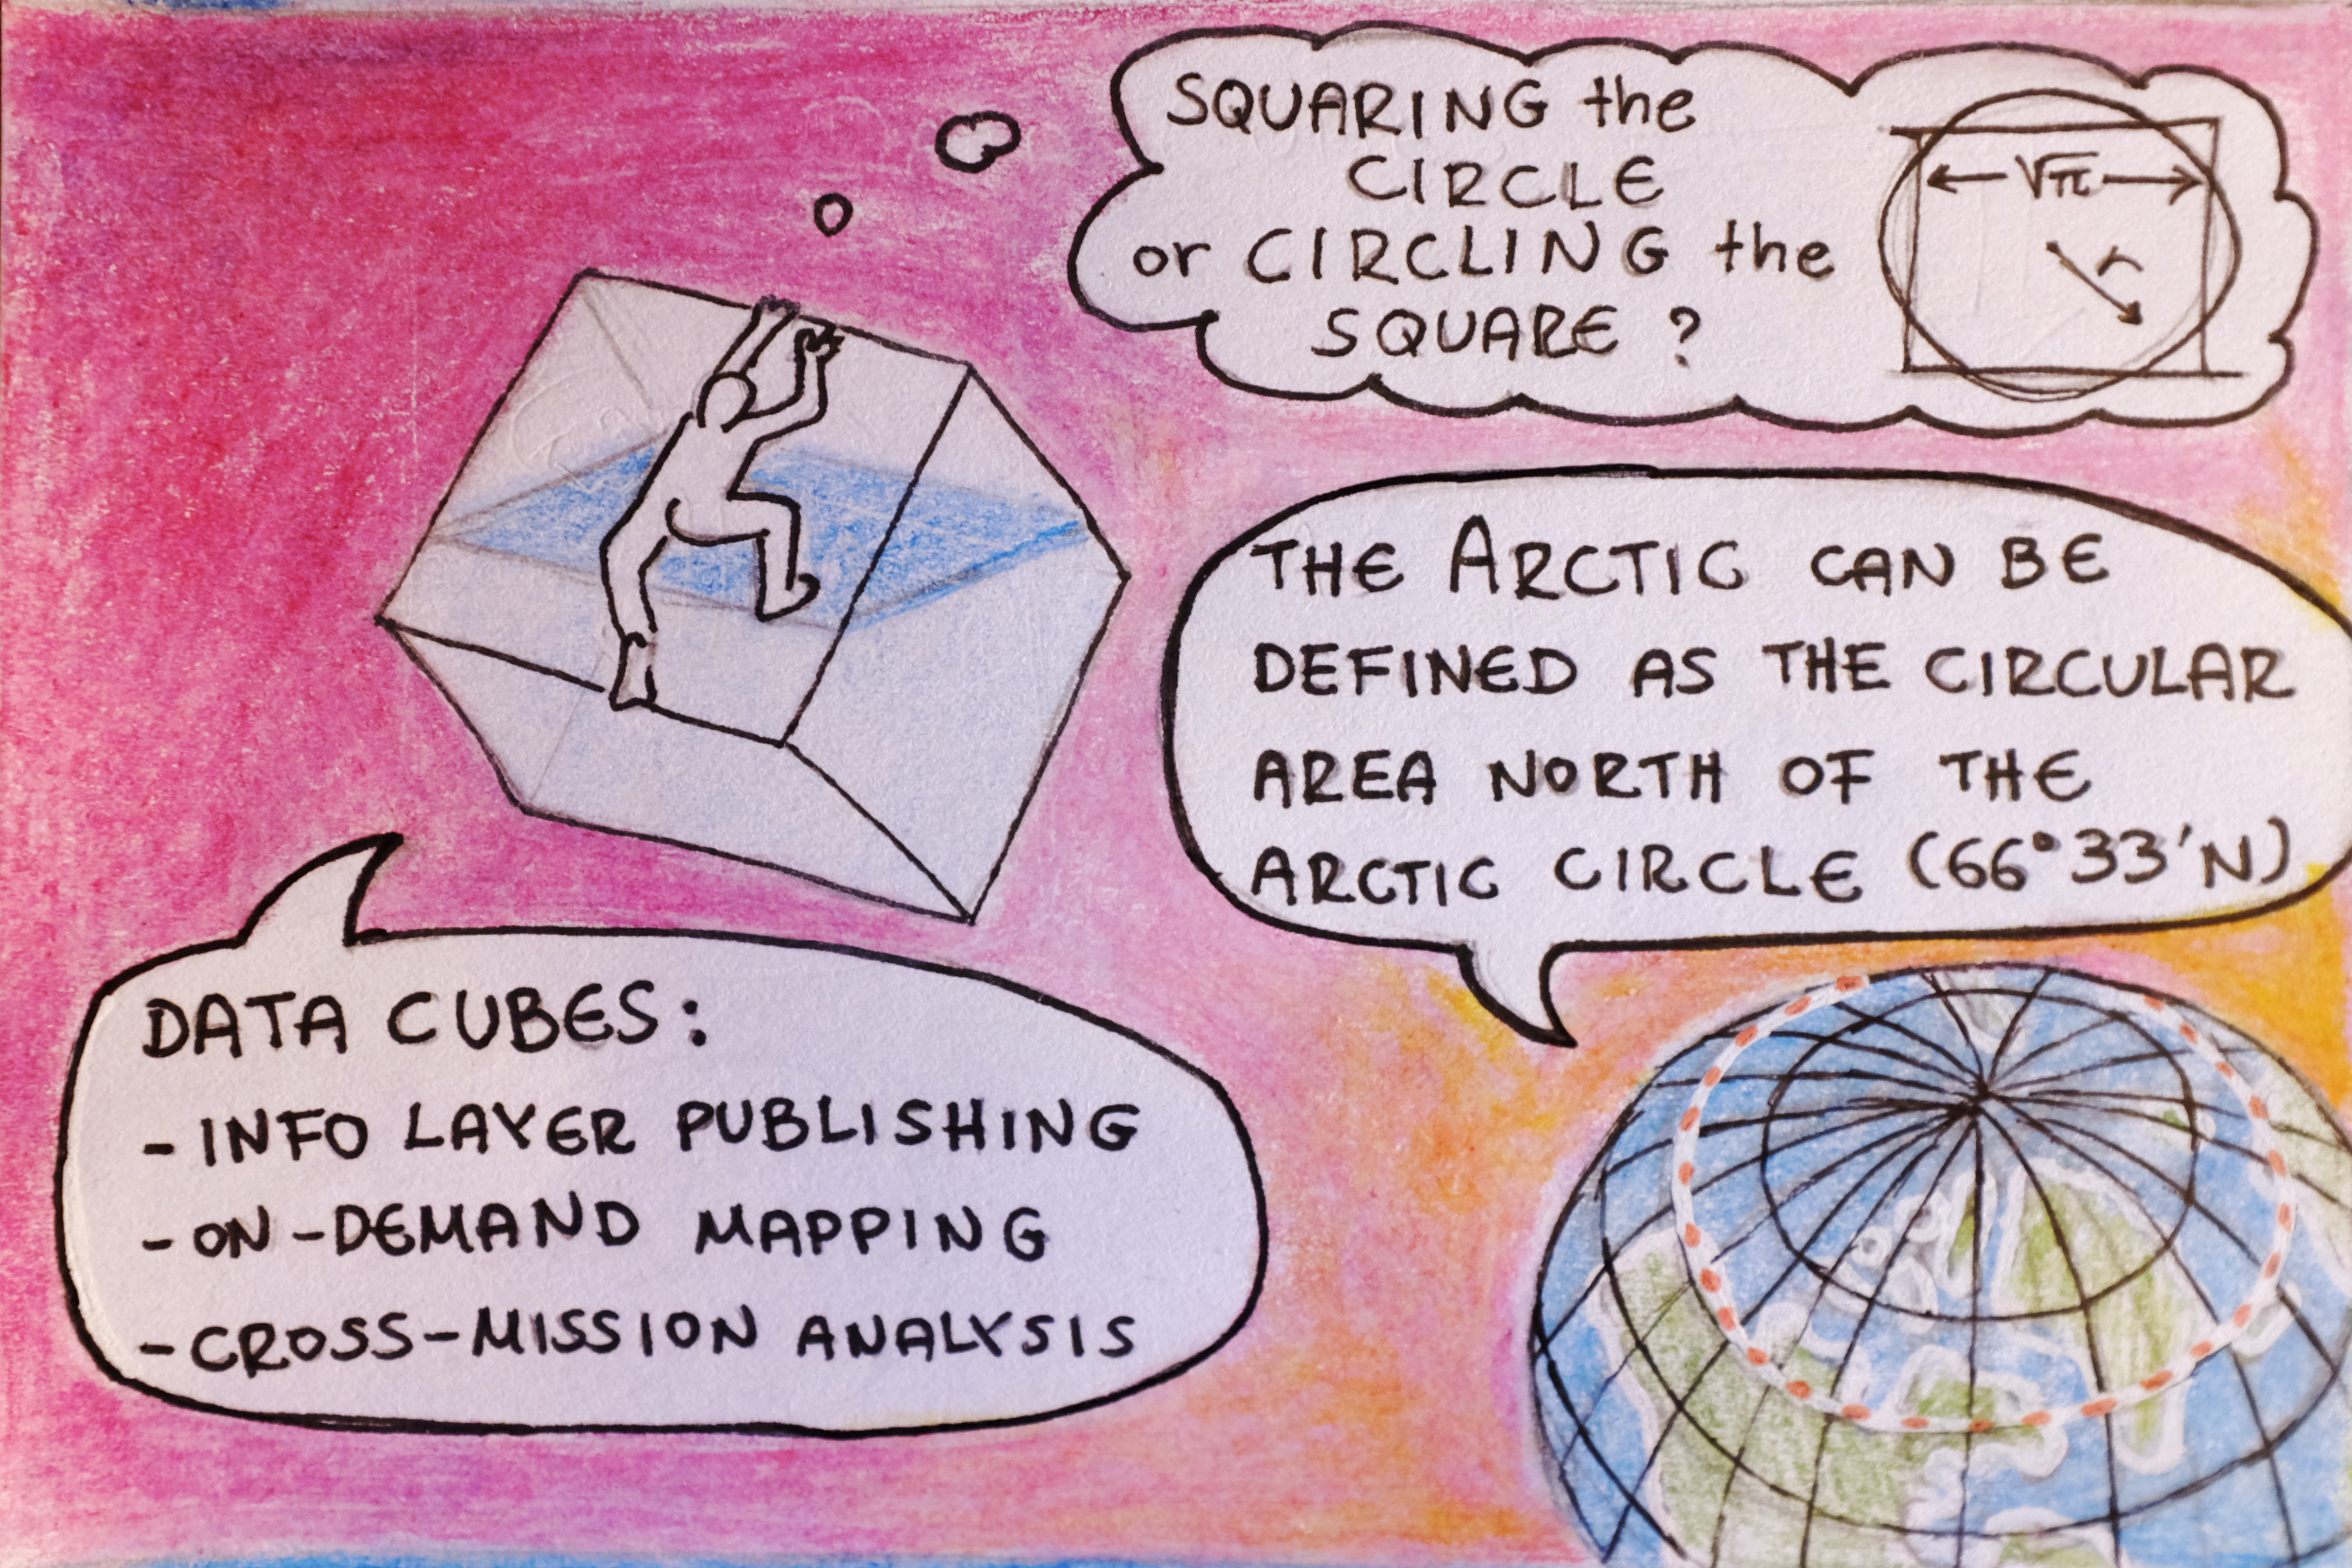 SQUARING the
CIRCLE
or CIRCLING the
SQUARE ?
√π
r
THE ARCTIC CAN BE
DEFINED AS THE CIRCULAR
AREA NORTH OF THE
ARCTIC CIRCLE (66°33'N)
DATA CUBES:
- INFO LAYER PUBLISHING
- ON-DEMAND MAPPING
- CROSS-MISSION ANALYSIS